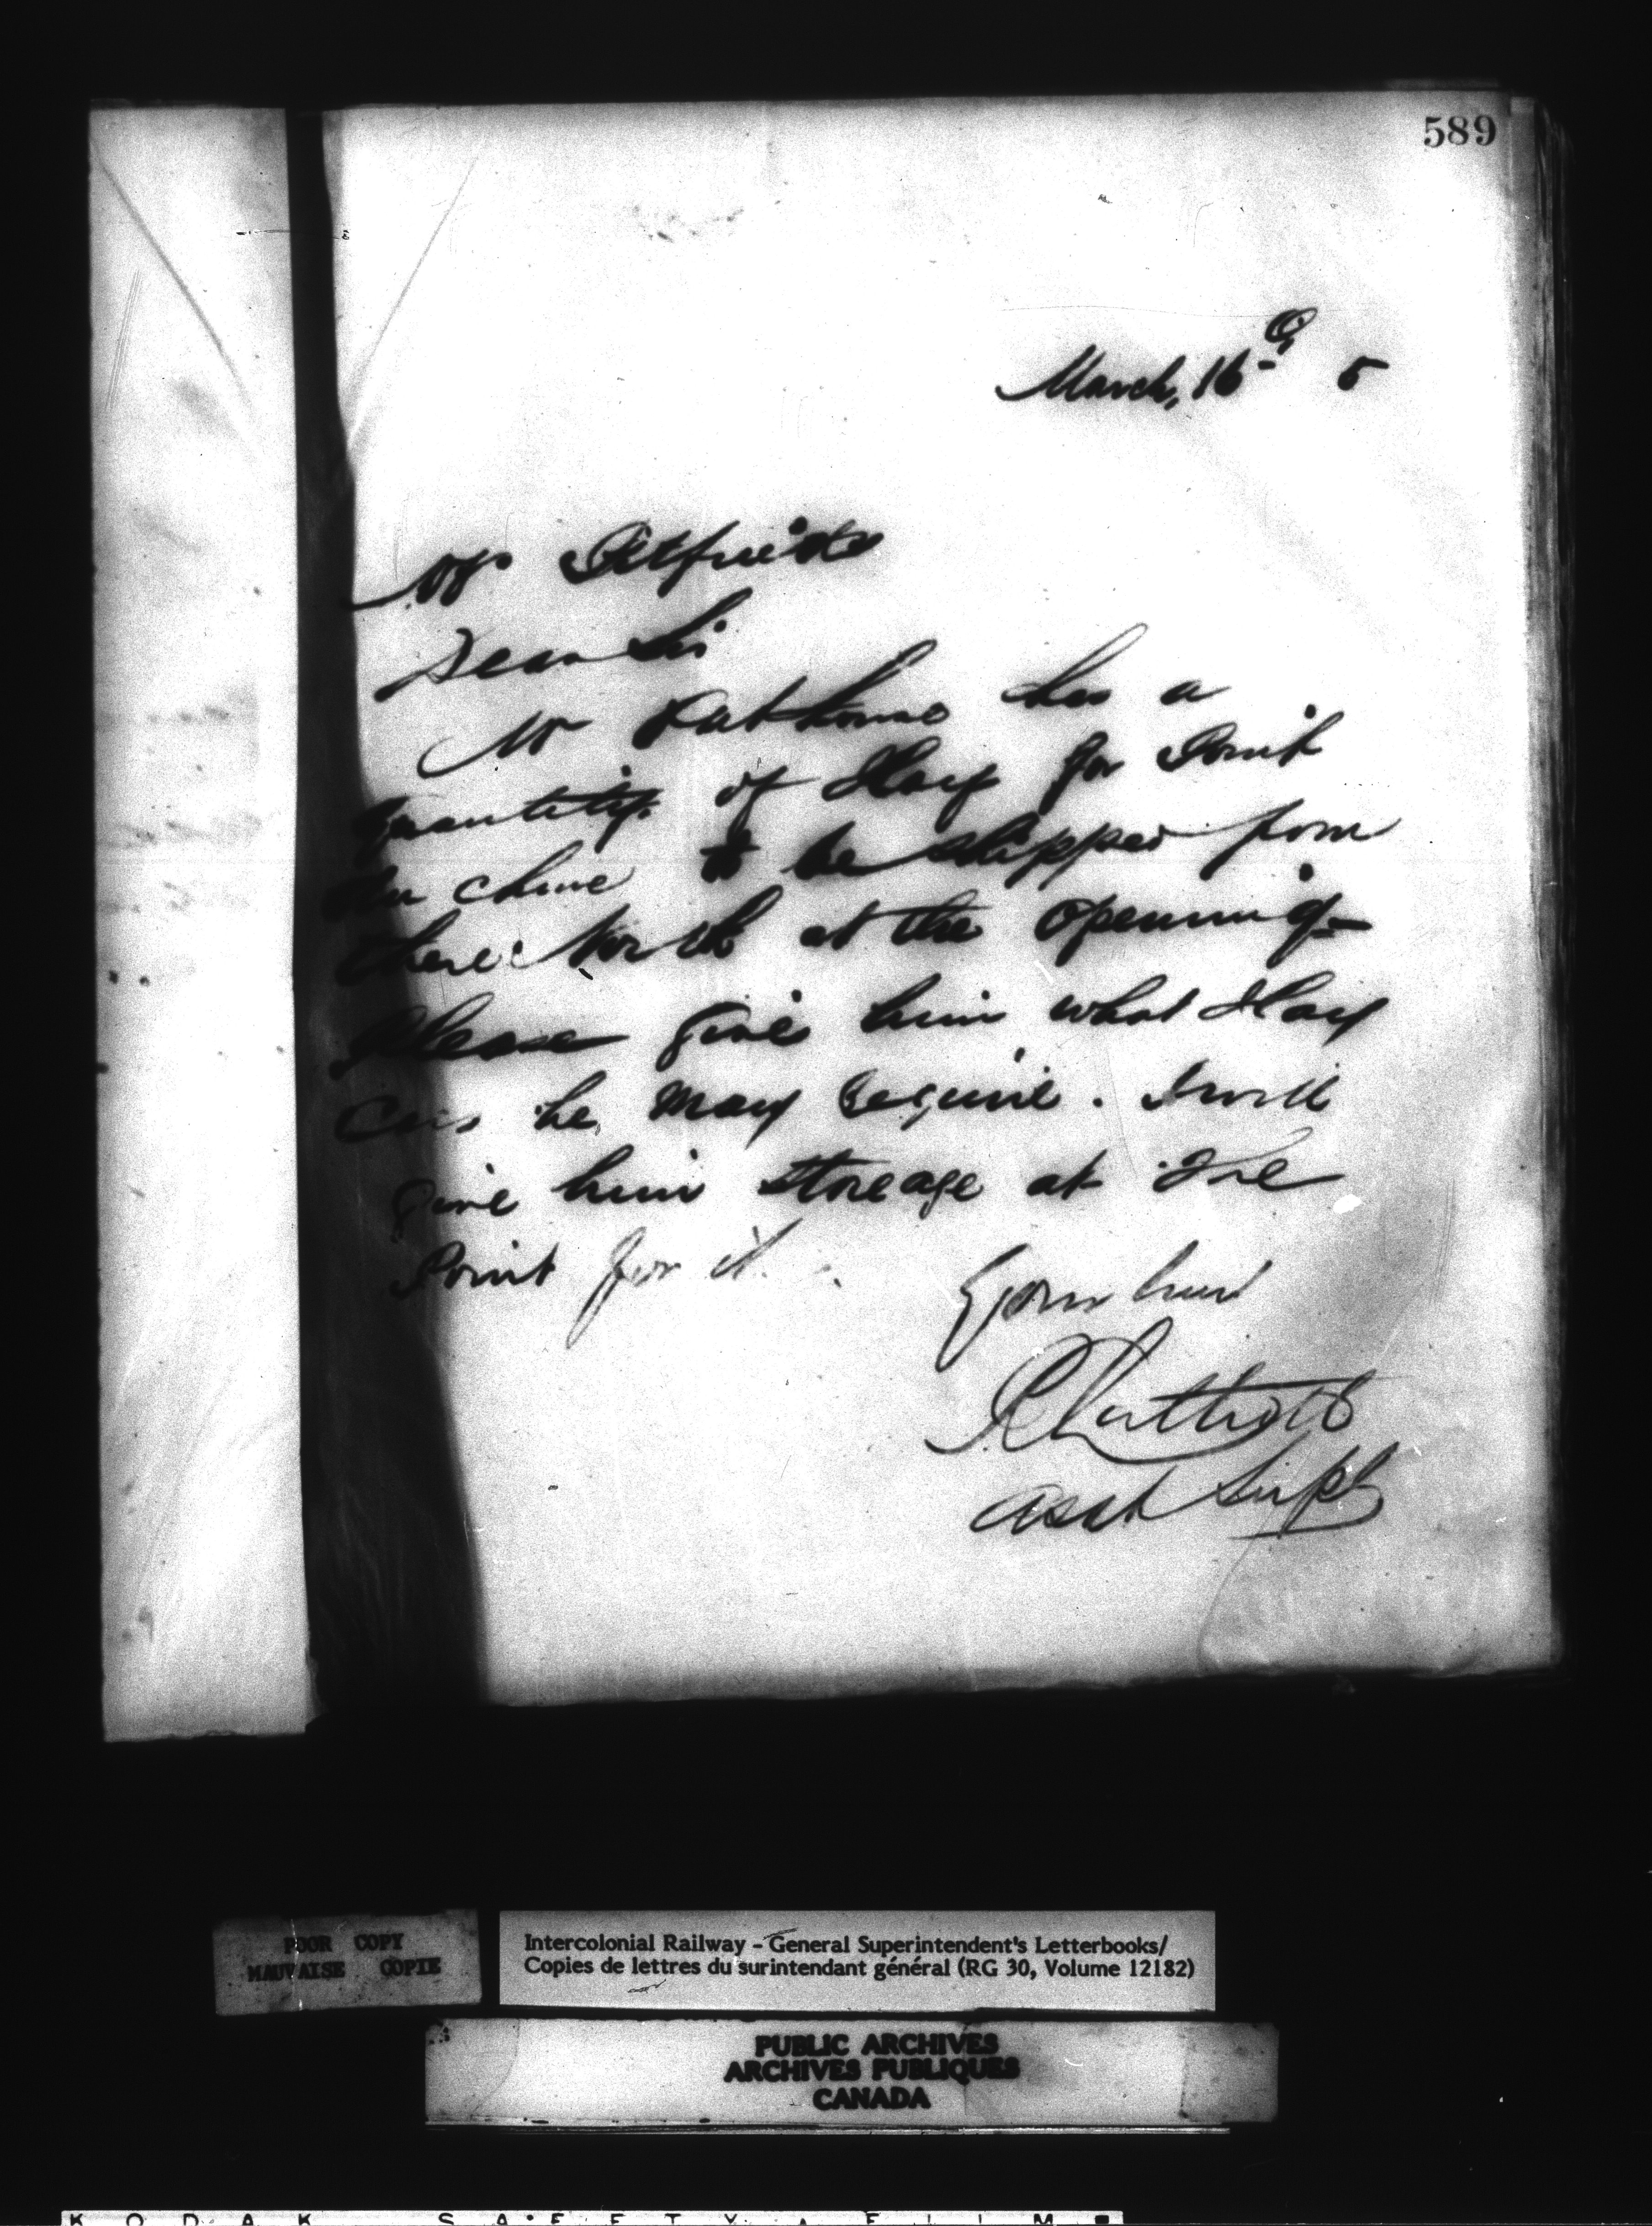 589
March, 16th 5
Mr Pitfield
Dear Sir
Mr has a
quantity of Hay for Point
du Chene to be shipped from
there North at the opening -
Please give him what Hay
Cars he may require. I will
give him storeage at the
Point for it.
Yours truly
Asst Supt
POOR COPY
MAUVAISE COPIE
Intercolonial Railway - General Superintendent's Letterbooks/
Copies de lettres du surintendant général (RG 30, Volume 12182)
PUBLIC ARCHIVES
ARCHIVES PUBLIQUES
CANADA
KODAK SAFETY FILM